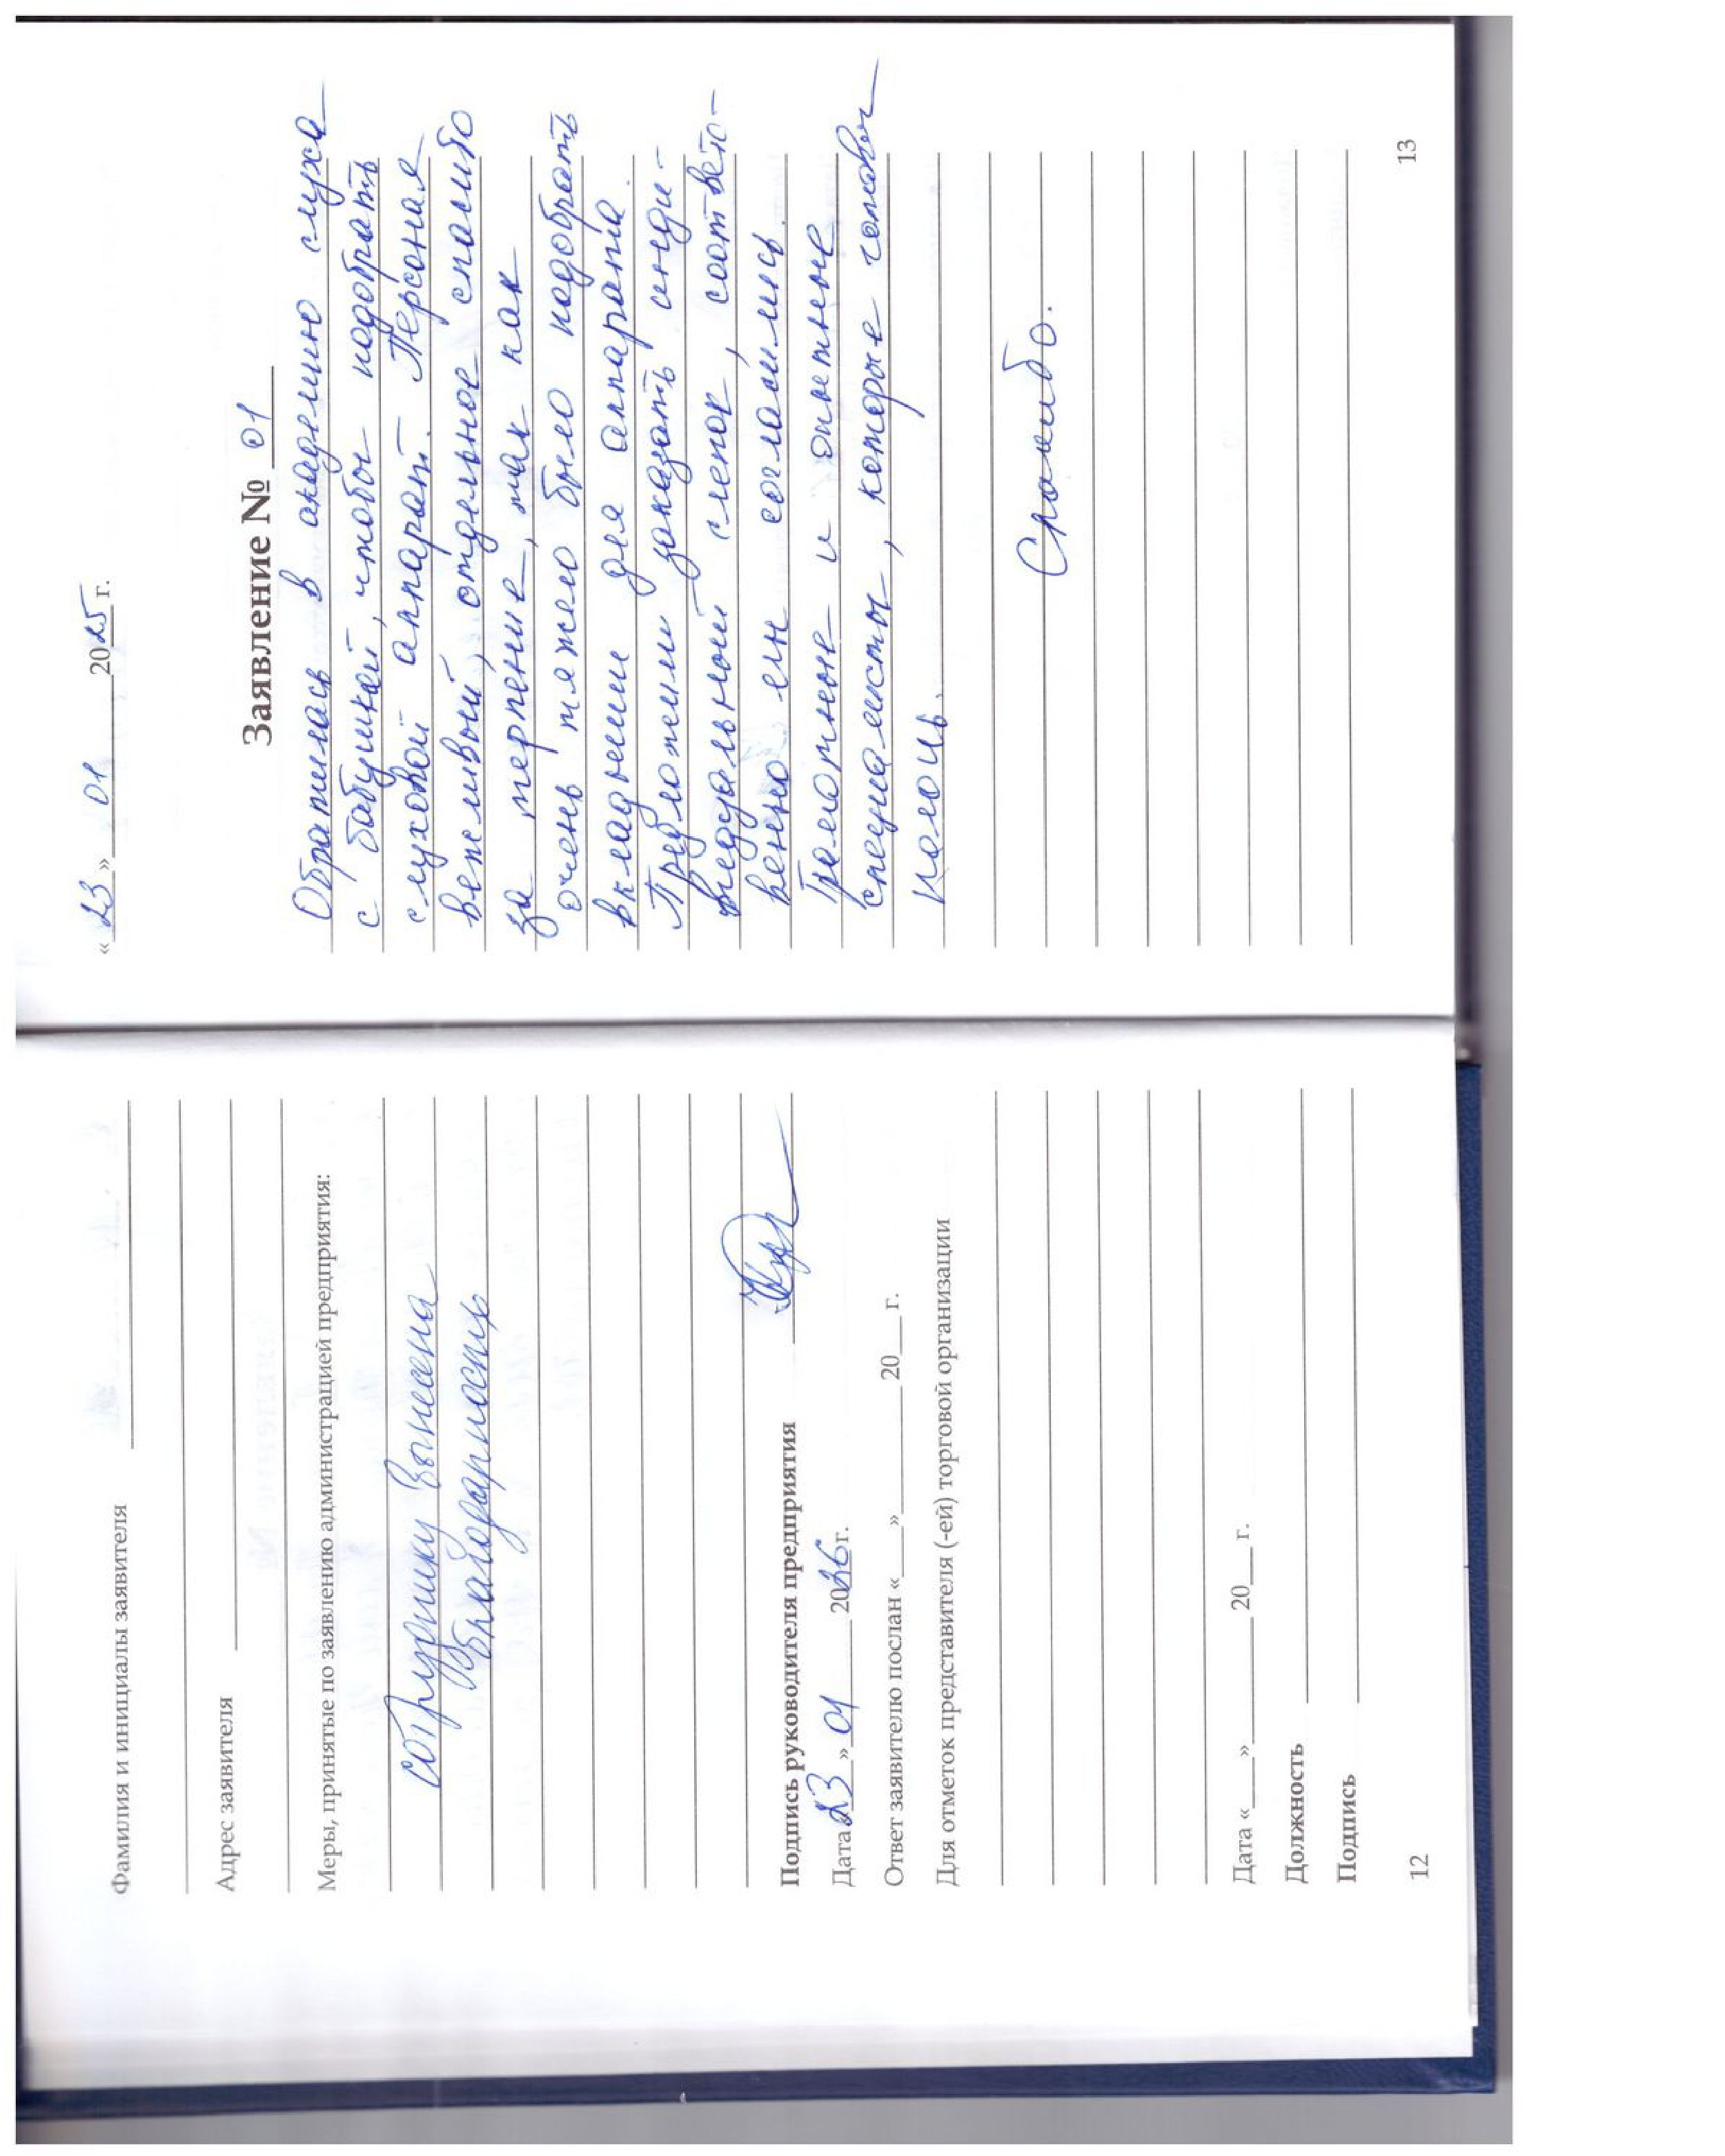 Фамилия и инициалы заявителя
Адрес заявителя
Меры, принятые по заявлению администрацией предприятия:
сотруднику вынесена
благодарность
Подпись руководителя предприятия
Дата «23» 01 2026 г.
Ответ заявителю послан «___» ________ 20__ г.
Для отметок представителя (-ей) торговой организации
Дата «___» ________ 20__ г.
Должность
Подпись
12
«23» 01 2025 г.
Заявление № 01
Обратилась в академию слуха
с бабушкой, чтобы подобрать
слуховой аппарат. Персонал
вежливый, отдельное спасибо
за терпение, так как
очень тяжело было подобрать
вкладыши для аппарата.
Предложили заказать инди-
видуальный слепок, соответс-
венно мы согласились.
Грамотные и опытные
специалисты, которые готовы
помощь.
Спасибо.
13